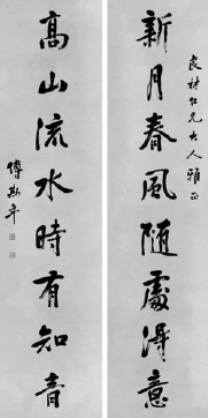 良材仁兄大人雅正
新月春風隨處得意
高山流水時有知音
傅斯年